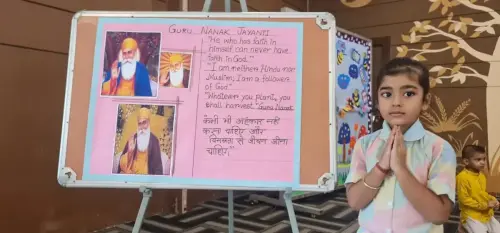 GURU NANAK JAYANTI
"He who has faith in
himself can never have
faith in God."
"I am neither Hindu nor
Muslim, I am a follower
of God"
"Whatever you plant, you
shall harvest." Guru Nanak
कभी भी अहंकार नहीं
करना चाहिए और
विनम्रता से जीवन जीना
चाहिए"